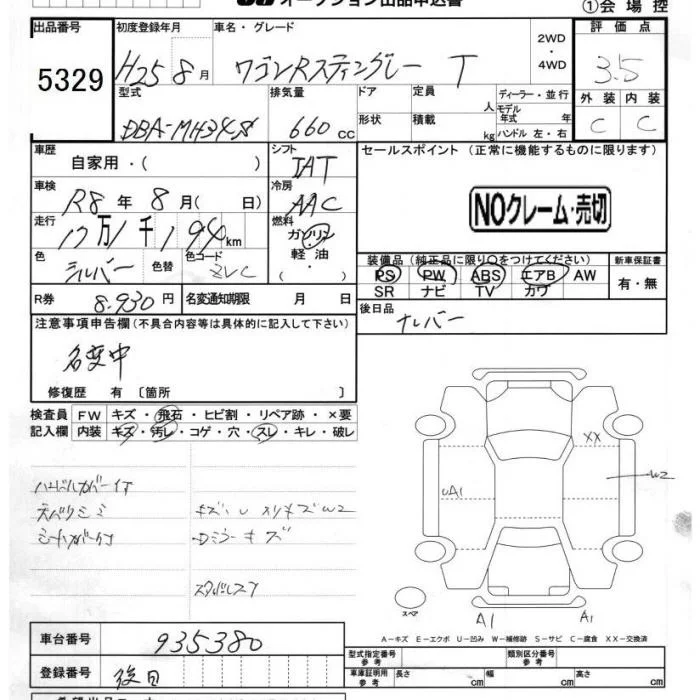 オークション出品申込書
①会場控
出品番号 初度登録年月 車名・グレード 2WD・4WD 評価点
5329 H25 8月 ワゴンRスティングレー T 3.5
型式 排気量 ドア 定員 人 ディーラー・並行 外装 内装
モデル年式 年
DBA-MH34S 660cc 形状 積載 kg ハンドル 左・右 C C
車歴 シフト セールスポイント (正常に機能するものに限ります)
自家用・( ) IAT
車検 冷房
R8年8月( 日) AAC NOクレーム・売切
走行 燃料
17万1千194km ガソリン・軽油・
色 色替 色コード 装備品(純正品に限り○をつけてください) 新車保証書
シルバー ZLC PS PW ABS エアB AW 有・無
SR ナビ TV カワ
R券 8.930円 名変通知期限 月 日 後日品
ナレバー
注意事項申告欄(不具合内容等は具体的に記入して下さい)
名変中
修復歴 有〔箇所 〕
検査員 FW キズ・飛石・ヒビ割・リペア跡・×要
記入欄 内装 キズ・汚レ・コゲ・穴・スレ・キレ・破レ
XX
W2
UA1
ハンドルカバー付
天ベリシミ キズ・U スリキズW2
シートカバー付 ロミラーキズ
スタッドレスT
スペア
A1 A1
A-キズ E-エクボ U-凹み W-補修跡 S-サビ C-腐食 XX-交換済
車台番号 935380 型式指定番号 参考 類別区分番号 参考
登録番号 後日 車庫証明用 参考 長さ cm 幅 cm 高さ cm